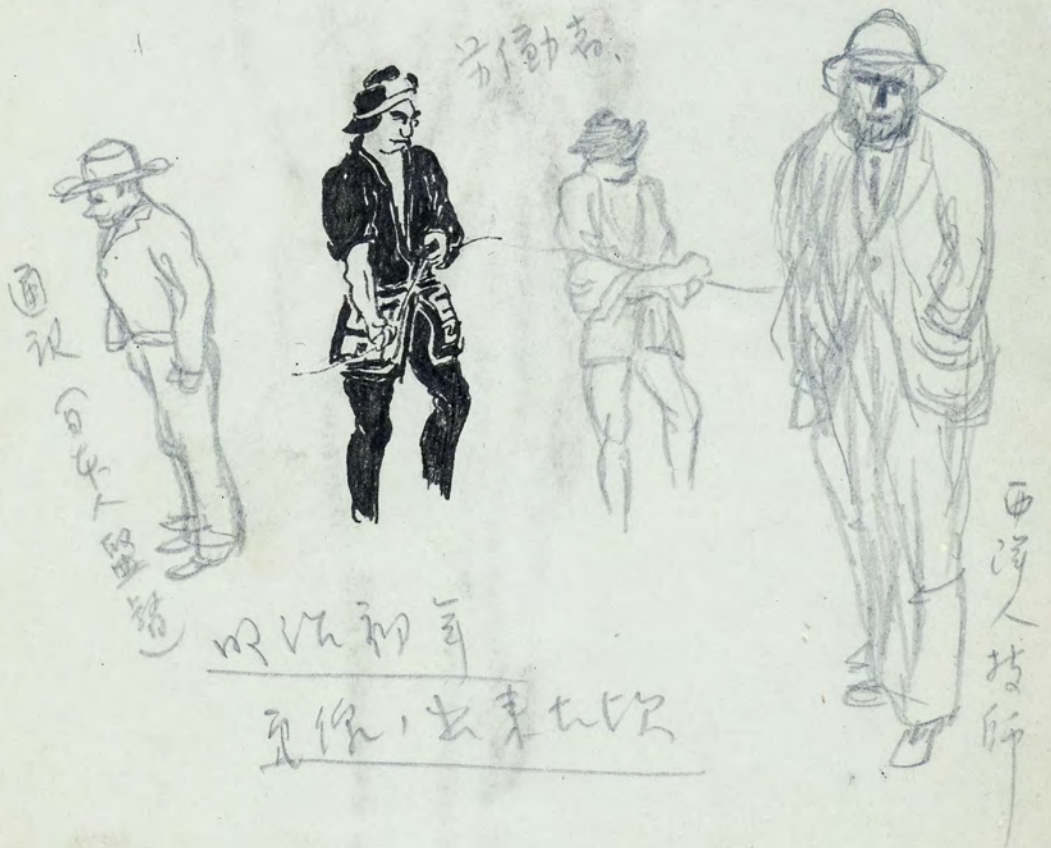 労働者、
通訳
日本人監督
西洋人技師
明治初年
出来た頃